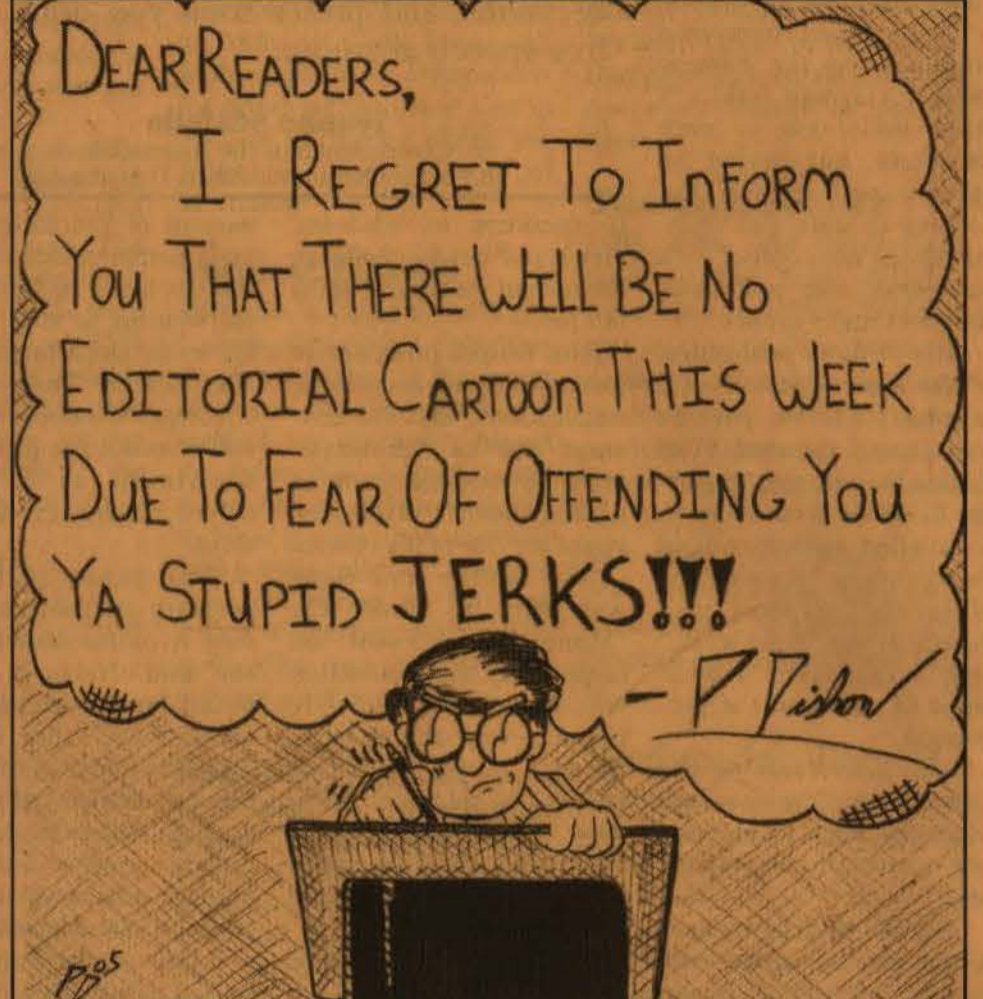 DEAR READERS,
I REGRET TO INFORM
YOU THAT THERE WILL BE NO
EDITORIAL CARTOON THIS WEEK
DUE TO FEAR OF OFFENDING YOU
YA STUPID JERKS!!!
- P Dishon
PD 05